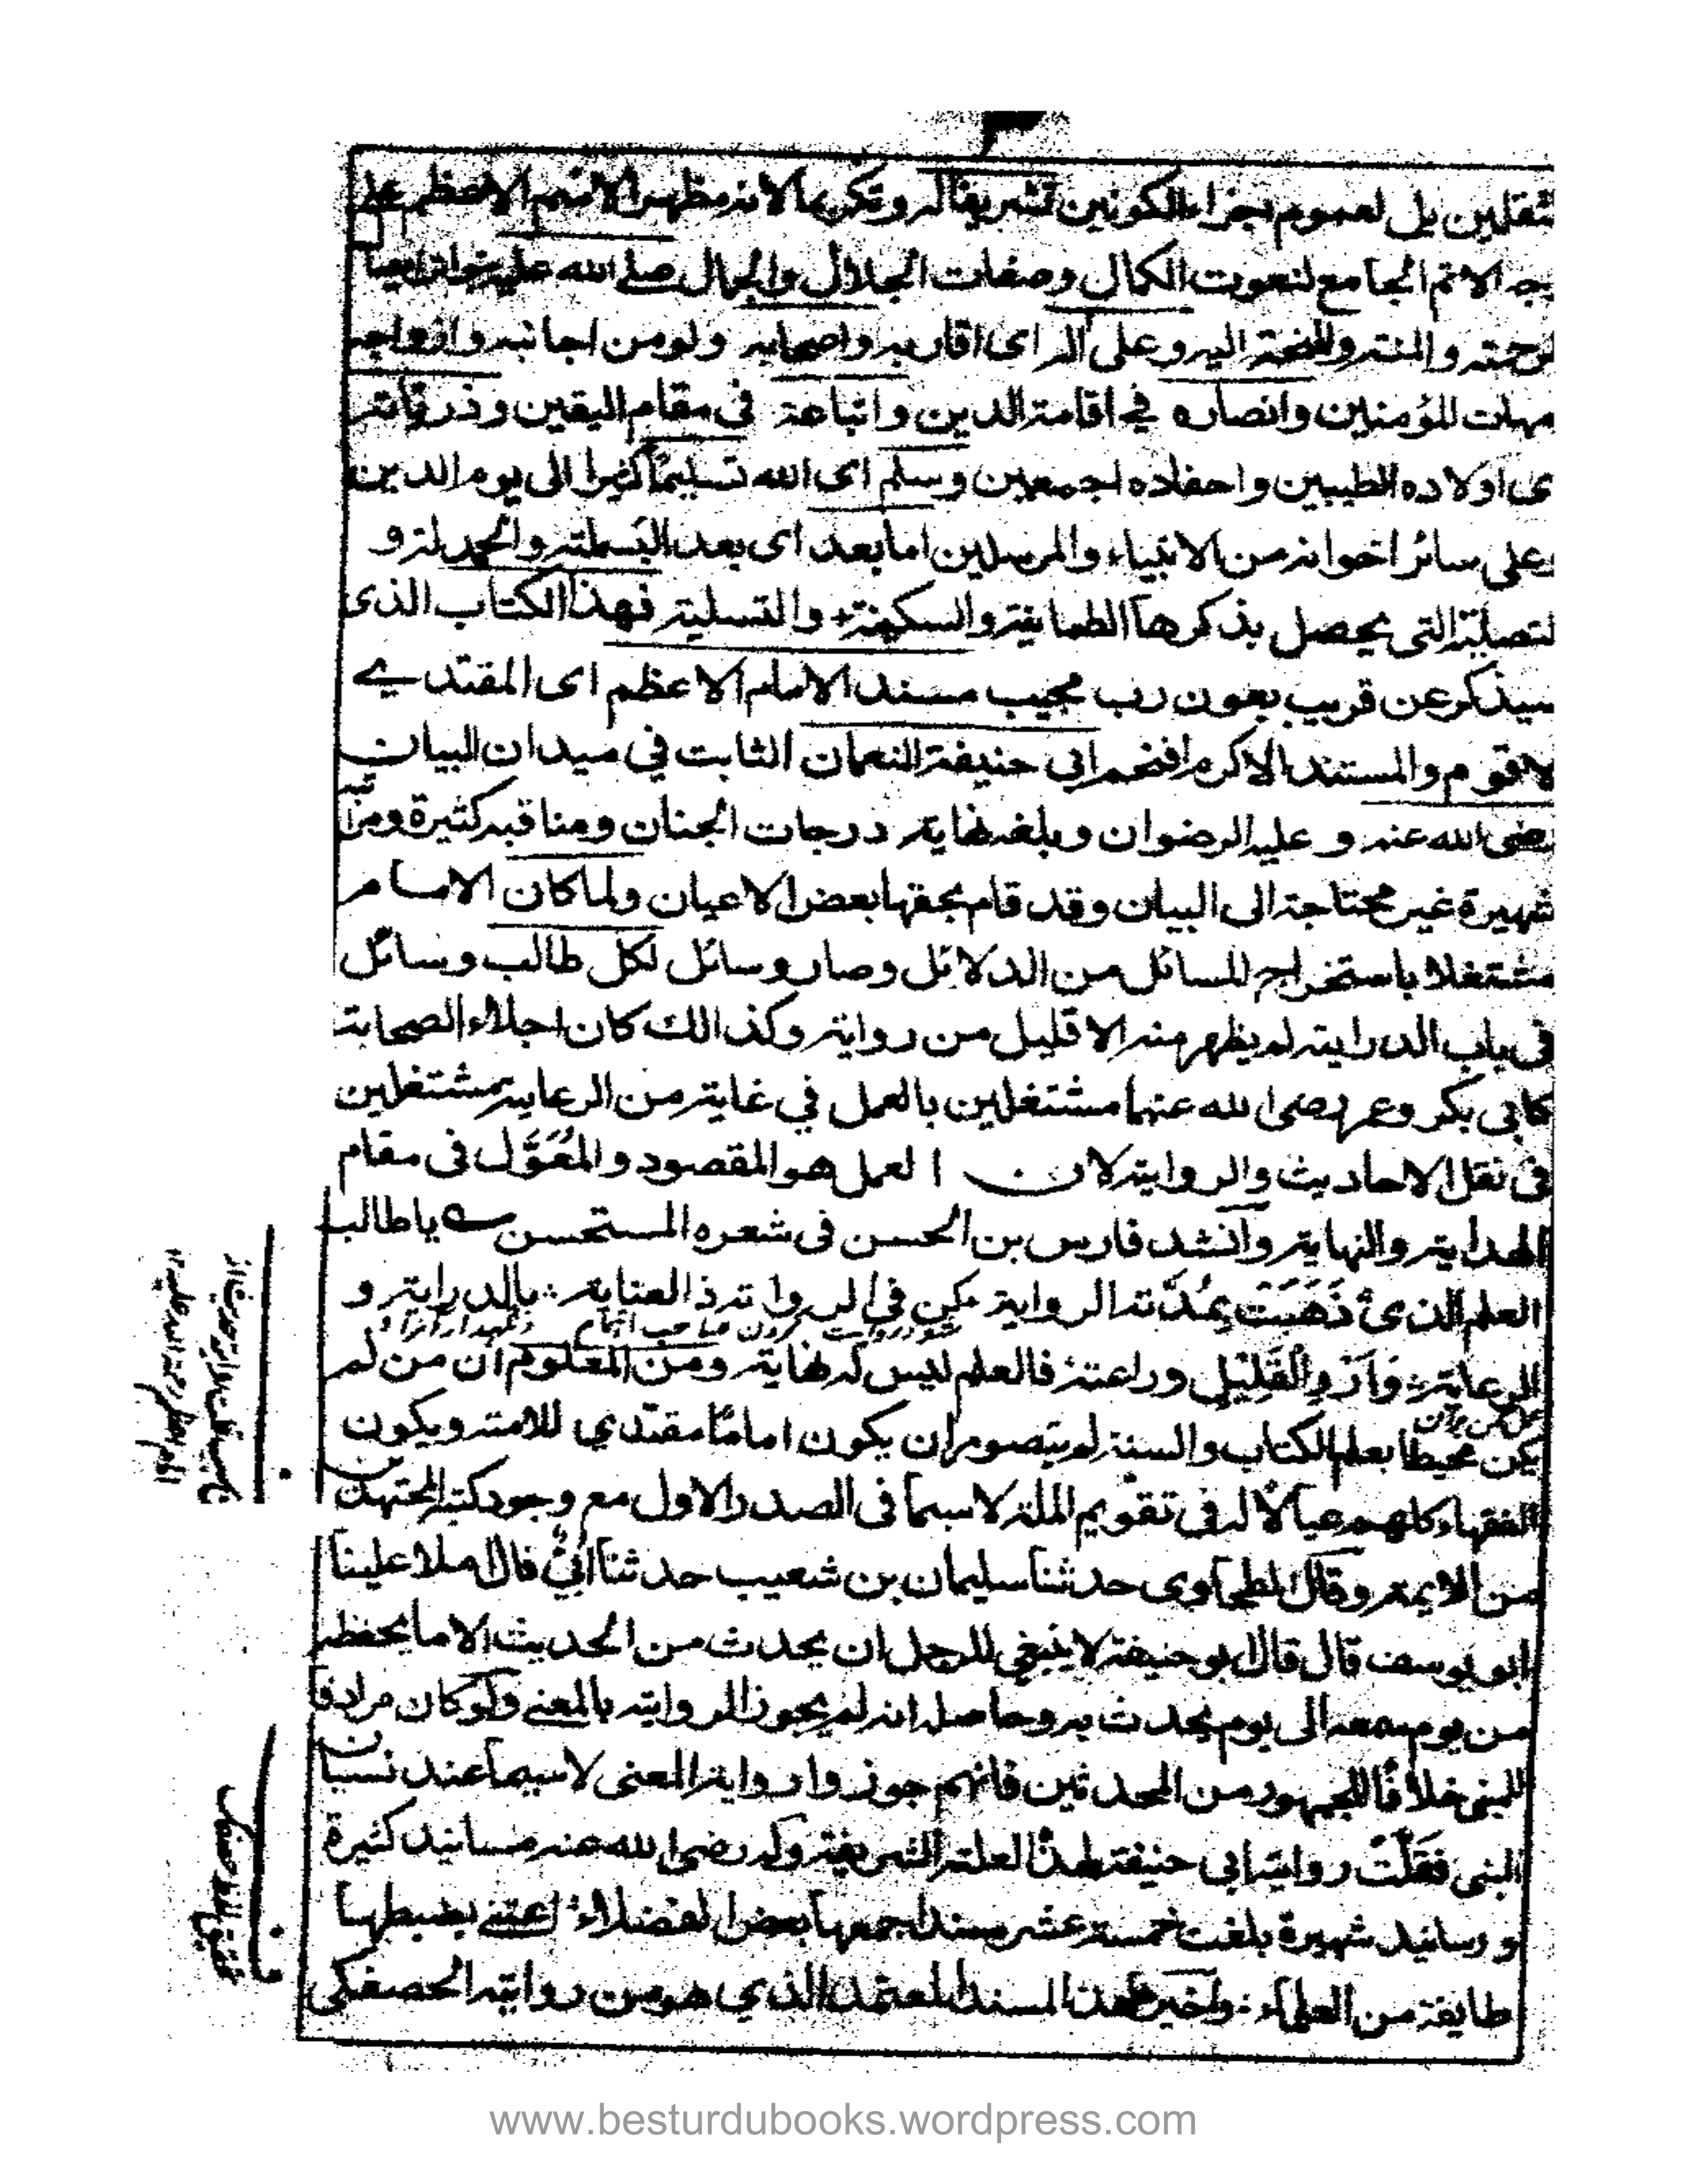 ثقلين بل لعموم اجزاء الكونين تشريفا له وتكريما لانه مظهر الاسم الاعظم على
جه الاتم الجامع لنعوت الكمال وصفات الجلال والجمال صلى الله عليه
لرحمة والمنة والمنحة اليه وعلى اله اى اقاربه واصحابه ولو من اجانبه وازواجه
مهات المؤمنين وانصاره في اقامة الدين واتباعه في مقام اليقين وذرياته
ى اولاده الطيبين واحفاده اجمعين وسلم اى الله تسليما كثيرا الى يوم الدين
وعلى سائر اخوانه من الانبياء والمرسلين اما بعد اى بعد البسملة والحمدلة و
لتصلية التى يحصل بذكرها الطمانية والسكينة والتسلية فهذا الكتاب الذى
سيذكر عن قريب بعون رب مجيب مسند الامام الاعظم اى المقتدى
لاقوم والمستند الاكرم افخم ابي حنيفة النعمان الثابت في ميدان البيان
رضى الله عنه و عليه الرضوان وبلغه نهاية درجات الجنان ومناقبه كثيرة ومراتبه
شهيرة غير محتاجة الى البيان وقد قام بحقها بعض الاعيان ولما كان الامام
مشتغلا باستخراج المسائل من الدلائل وصار وسائل لكل طالب وسائل
فى باب الدراية لم يظهر منه الا قليل من رواية وكذالك كان اجلاء الصحابة
كابى بكر وعمر رضى الله عنهما مشتغلين بالعمل في غاية من الرعاية مشتغلين
فى نقل الاحاديث والرواية لان العمل هو المقصود والمُعَوَّل فى مقام
الهداية والنهاية وانشد فارس بن الحسن فى شعره المستحسن ے ياطالب
العلم الذى ذَهَبَت بمُدّته الرواية كن في الرواية ذا العناية بالدراية و
الرعاية وَارْوِ القَلِيْل وراعته فالعلم ليس له نهاية ومن المعلوم ان من لم
يكن محيطا بعلم الكتاب والسنة لم يتصور ان يكون اماما مقتدي للامة ويكون
الفقهاء كلهم عيالا له فى تقويم الملة لاسيما فى الصدر الاول مع وجود كثرة المجتهدين
من الايمة وقال الطحاوى حدثنا سليمان بن شعيب حدثنا ابي قال املا علينا
ابو يوسف قال قال ابو حنيفة لا ينبغي للرجل ان يحدث من الحديث الا ما يحفظه
من يوم سمعه الى يوم يحدث به وحاصله انه لم يجوز الرواية بالمعنے ولو كان مرادفا
للمبنى خلافا للجمهور من المحدثين فانهم جوزوا رواية المعنى لاسيما عند نسيان
المبنى فقلّت رواية ابى حنيفة لهذا العلة الشريفة وله رضى الله عنه مسانيد كثيرة
و رسانيد شهيرة بلغت خمسة عشر مسندا جمعها بعض الفضلاء اعتنے بضبطها
طايفة من العلماء واخير هذا المسند المعتمد الذي هو من رواية الحصفكى
www.besturdubooks.wordpress.com